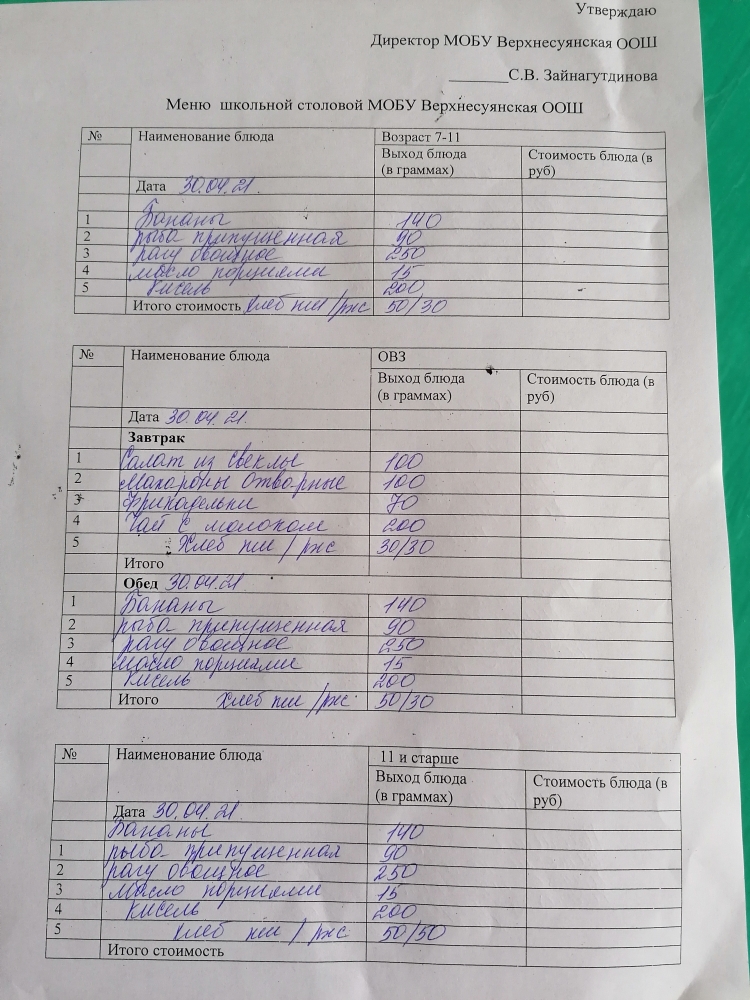 Утверждаю
Директор МОБУ Верхнесуянская ООШ
_______С.В. Зайнагутдинова
Меню школьной столовой МОБУ Верхнесуянская ООШ
№ Наименование блюда Возраст 7-11
Выход блюда (в граммах) Стоимость блюда (в руб)
Дата 30.04.21.
1 Бананы 140
2 рыба припущенная 90
3 рагу овощное 250
4 масло порциями 15
5 Кисель 200
Итого стоимость хлеб пш/ржс 50/30
№ Наименование блюда ОВЗ
Выход блюда (в граммах) Стоимость блюда (в руб)
Дата 30.04.21.
Завтрак
1 Салат из свеклы 100
2 Макароны отварные 100
3 Фрикадельки 70
4 Чай с молоком 200
5 Хлеб пш/ржс 30/30
Итого
Обед 30.04.21
1 Бананы 140
2 рыба припущенная 90
3 рагу овощное 250
4 масло порциями 15
5 Кисель 200
Итого хлеб пш/ржс 50/30
№ Наименование блюда 11 и старше
Выход блюда (в граммах) Стоимость блюда (в руб)
Дата 30.04.21.
Бананы 140
1 рыба припущенная 90
2 рагу овощное 250
3 масло порциями 15
4 Кисель 200
5 хлеб пш/ржс 50/50
Итого стоимость